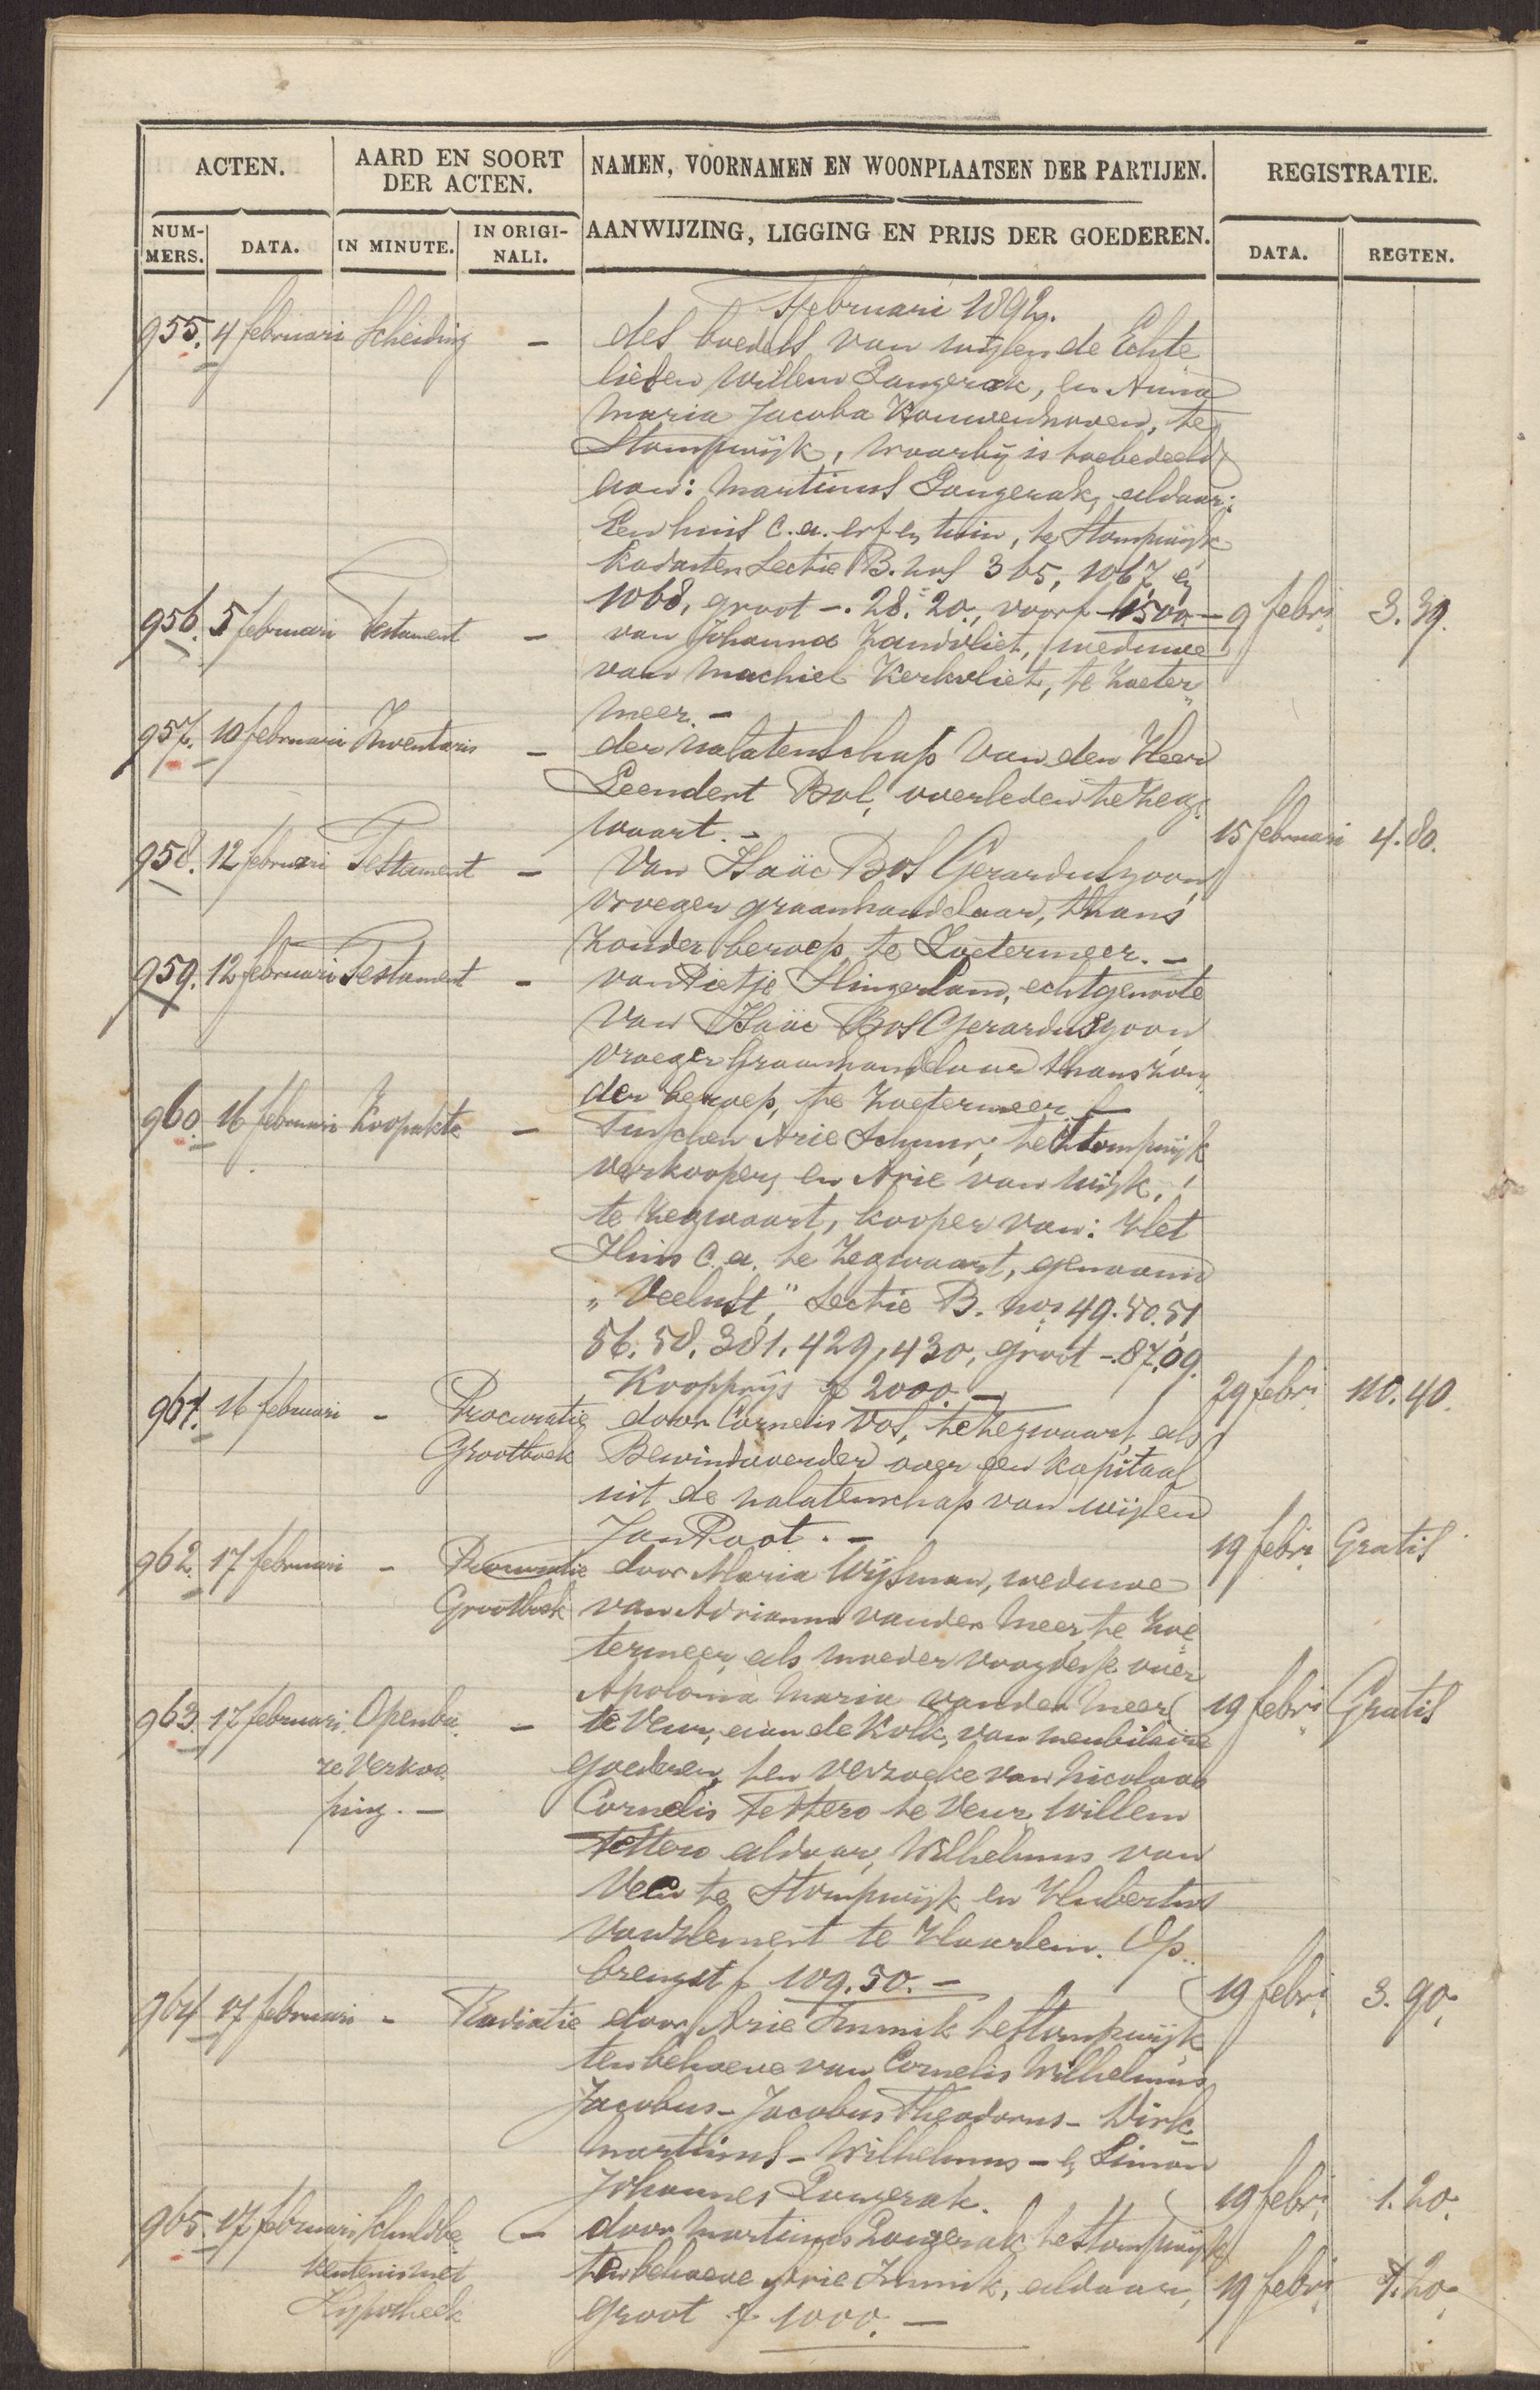 ACTEN.
AARD EN SOORT
DER ACTEN.
NAMEN, VOORNAMEN EN WOONPLAATSEN DER PARTIJEN.
REGISTRATIE.
NUM-
MERS.
DATA.
IN MINUTE.
IN ORIGI-
NALI.
AANWIJZING, LIGGING EN PRIJS DER GOEDEREN.
DATA.
REGTEN.
Februari 1892.
955. 4 februari Scheiding - des boedels van wijlen de Echte
lieden Willem Langerak, en Anna
Maria Jacoba Kouwenhoven, te
Stompwijk, waarbij is toebedeeld
aan: Martinus Langerak, aldaar:
Een huis c.a. erf en tuin, te Stompwijk
kadaster Sectie B. nos 365, 1067, en
1068, groot -. 28. 20., voor f 1500.- 9 febri 3.39.
956. 5 februari Testament - van Johanna Zandvliet, weduwe
van Machiel Kerkvliet, te Zoeter„
meer. -
957. 10 februari Inventaris - der nalatenschap van den Heer
Leendert Bol, overleden te Zeg„
waart. - 15 februari 4.80.
958. 12 februari Testament - Van Isaäc Bos Gerarduszoon,
vroeger graanhandelaar, thans
zonder beroep te Zoetermeer. -
959. 12 februari Testament - van Pietje Slingerland, echtgenoote
Van Isaäc Bos Gerarduszoon
vroeger Graanhandelaar thans zon„
der beroep, te Zoetermeer. -
960. 16 februari Koopakte - Tusschen Arie Schuur, te Stompwijk
verkooper, en Arie van Wijk,
te Zegwaart, kooper van: Het
Huis c.a. te Zegwaart, genaamd
„Veelust", Sectie B. nos 49.50.51
56. 58. 381. 429, 430, groot -. 87.09.
Koopprijs f 2000. - 29 febri 110.40.
961. 16 februari - Procuratie door Cornelis Vos, te Zegwaart, als
Grootboek Bewindvoerder over een kapitaal
uit de nalatenschap van wijlen
Jan Poot. - 19 febri Gratis
962. 17 februari - Procuratie door Maria Wijsman, weduwe
Grootboek van Adrianus van der Meer, te Zoe
termeer, als moeder voogdesse over
Apolonia Maria van der Meer 19 febri Gratis
963. 17 februari. Openba - te Veur, aan de Kolk, van meubilaire
re Verkoo goederen, ten verzoeke van Nicolaas
ping. - Cornelis Tettero te Veur, Willem
Tettero aldaar, Wilhelmus van
Veen te Stompwijk en Hubertus
te Haarlem. Op„
brengst f 109.50. - 19 febri 3.90.
964 17 februari - Radiatie door Arie Immik te Stompwijk
ten behoeve van Cornelis Wilhelmus
Jacobus - Jacobus Theodorus - Dirk -
Martinus - Wilhelmus - en Simon
Johannes Langerak. 19 febri 1.20.
965. 17 februari Schuldbe - door Martinus Langerak te Stompwijk
kentenis met ten behoeve Arie Immik, aldaar, 19 febri 7.20.
Hypotheek groot f 1000. -